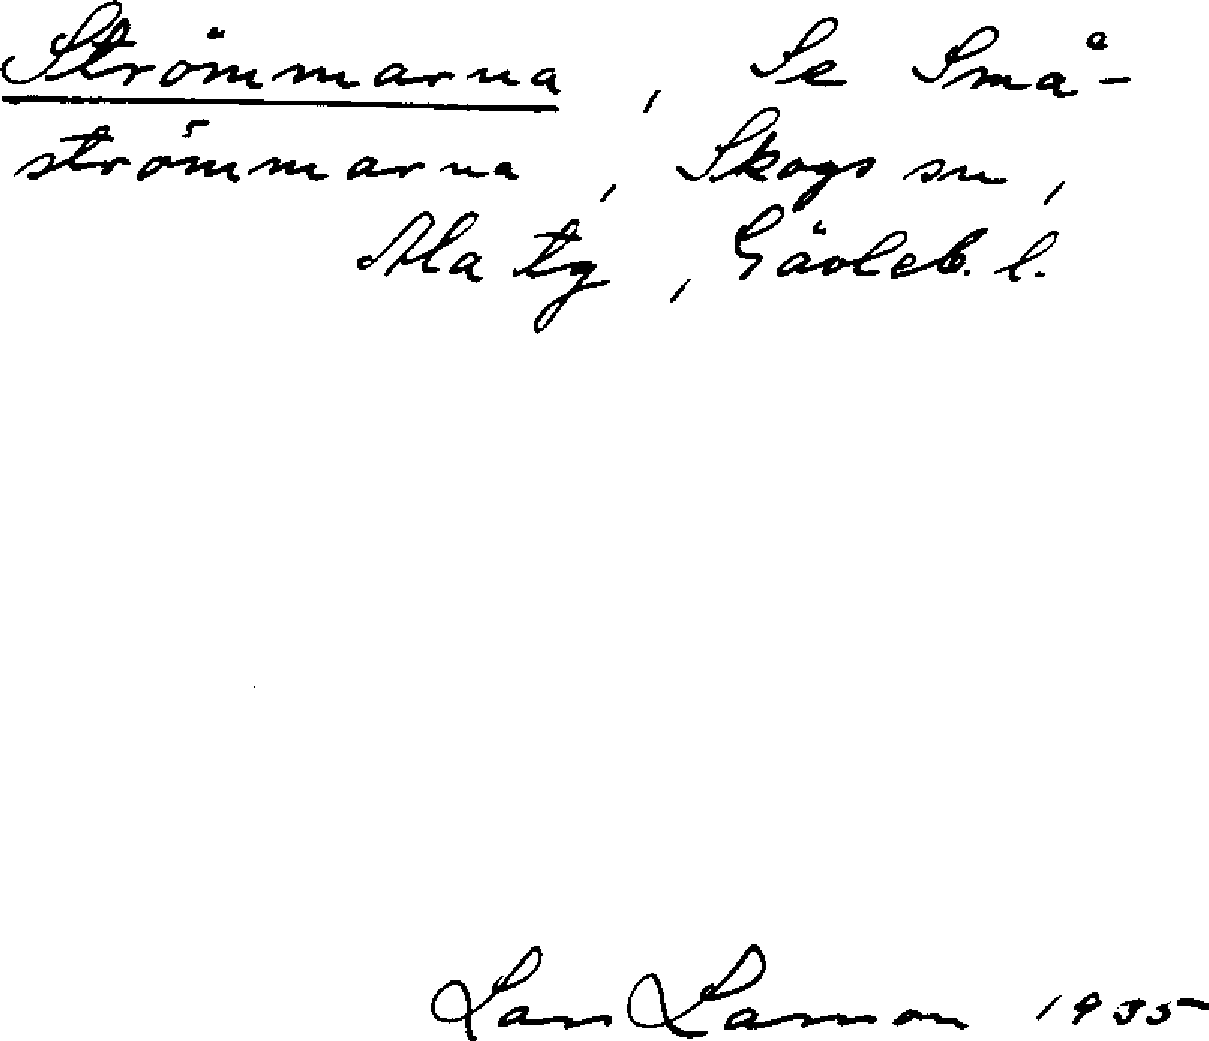 Strömmarna, Se Små-
strömmarna, Skogs sn,
Ala tg, Gävleb. l.
Lars Larsson 1935